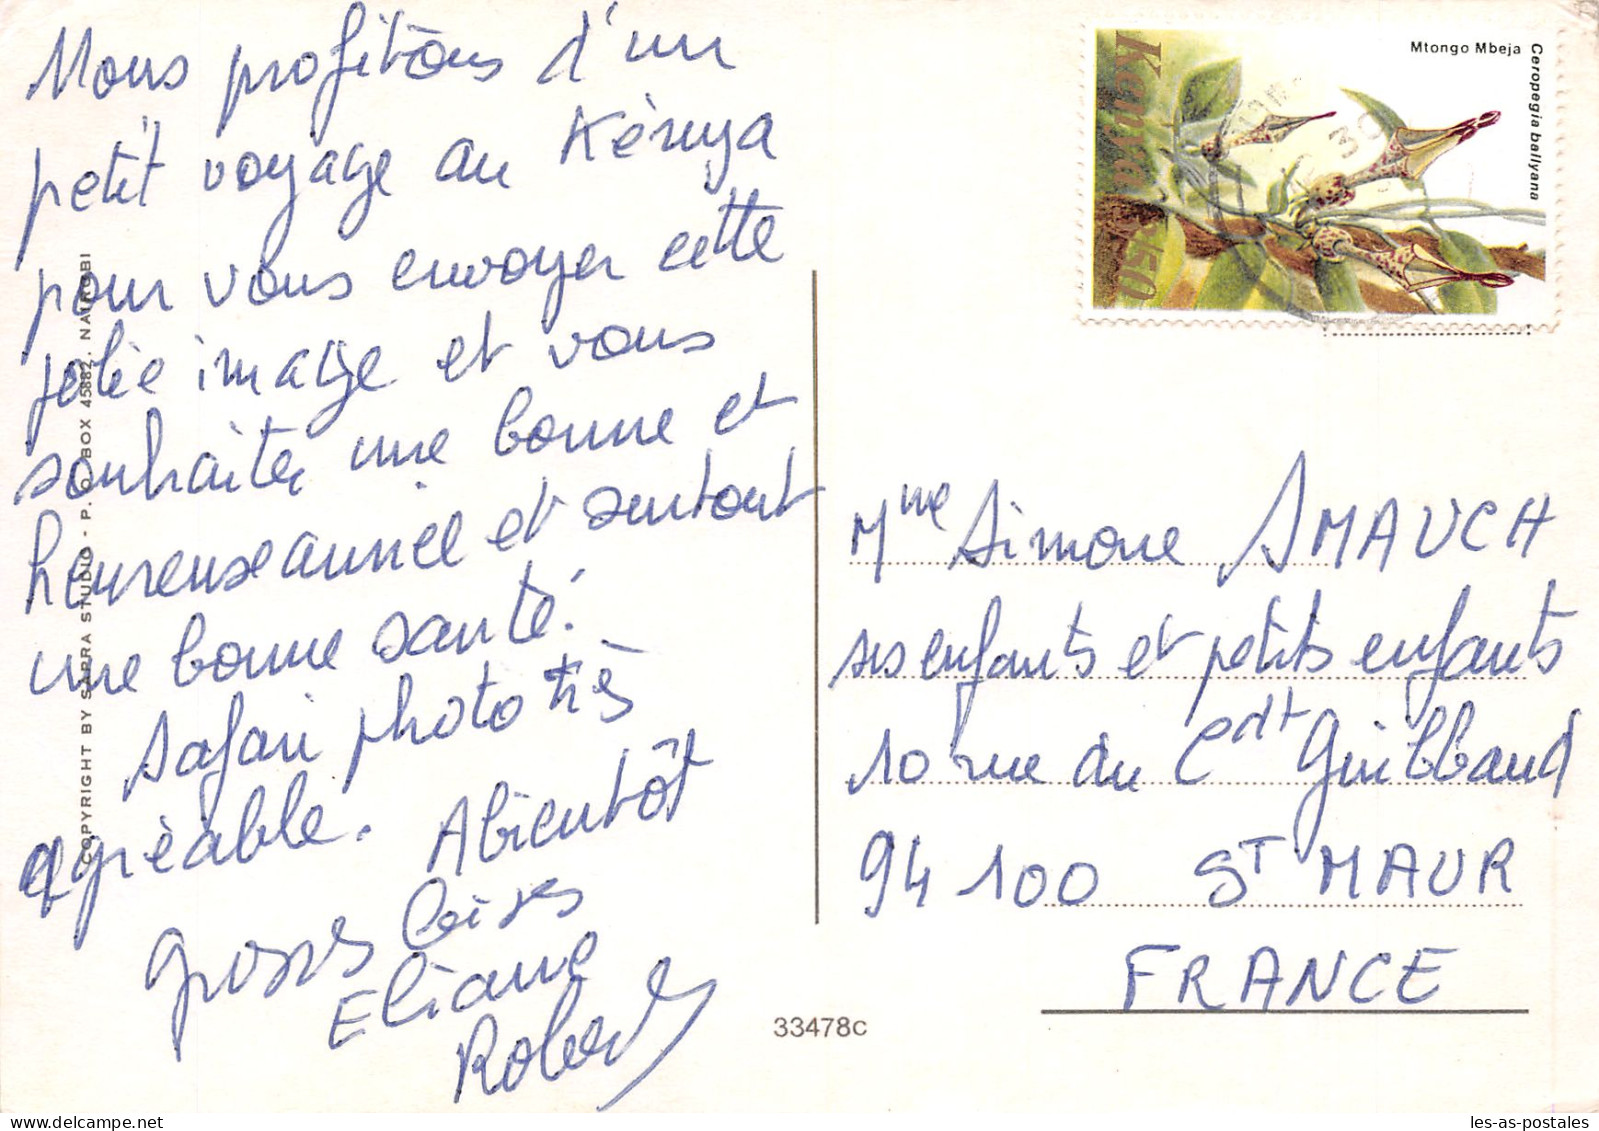 Nous profitons d'un
petit voyage au Kénya
pour vous envoyer cette
jolie image et vous
souhaiter une bonne et
heureuse année et surtout
une bonne santé!
Safari photo très
agréable. A bientôt
Grosses bises
Eliane
Robert
COPYRIGHT BY SAPRA STUDIO - P. O. BOX 45882. NAIROBI
33478c
Kenya
1/50
Mtongo Mbeja
Ceropegia ballyana
30
Mme Simone AMAUCH
ses enfants et petits enfants
10 rue du Cdt Guilbaud
94100 ST MAUR
FRANCE
les-as-postales